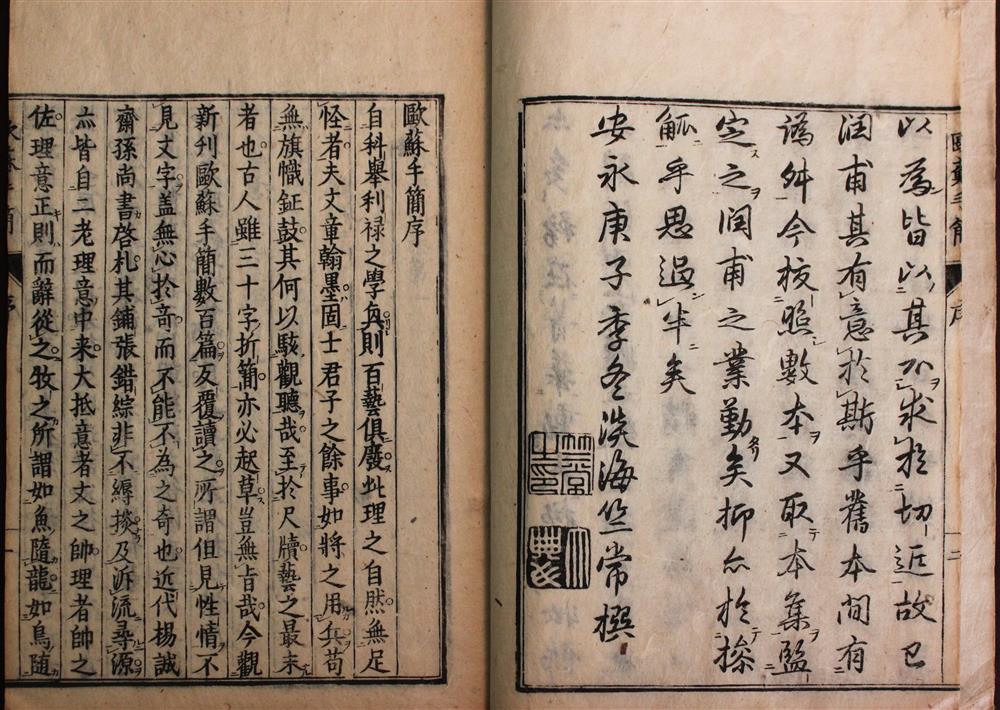 以為皆以其不求於切近故已
潤甫其有意於斯乎舊本間有
譌舛今挍照數本又取本集監
定之潤甫之業勤矣抑亦於操
觚乎思過半矣
安永庚子季冬淡海竺常撰
歐蘇手簡序
自科舉利禄之學興則百藝俱廢此理之自然無足
怪者夫文章翰墨固士君子之餘事如將之用兵苟
無旗幟鉦鼓其何以駭觀聽哉至於尺牘藝之最末
者也古人雖三十字折簡亦必起草豈無旨哉今觀
新刊歐蘇手簡數百篇反覆讀之所謂但見性情不
見文字盖無心於竒而不能不為之奇也近代楊誠
齋孫尚書啓札其鋪張錯綜非不縟掞乃泝流尋源
亦皆自二老理意中来大抵意者文之帥理者帥之
佐理意正則而辭從之牧之所謂如魚隨龍如鳥随